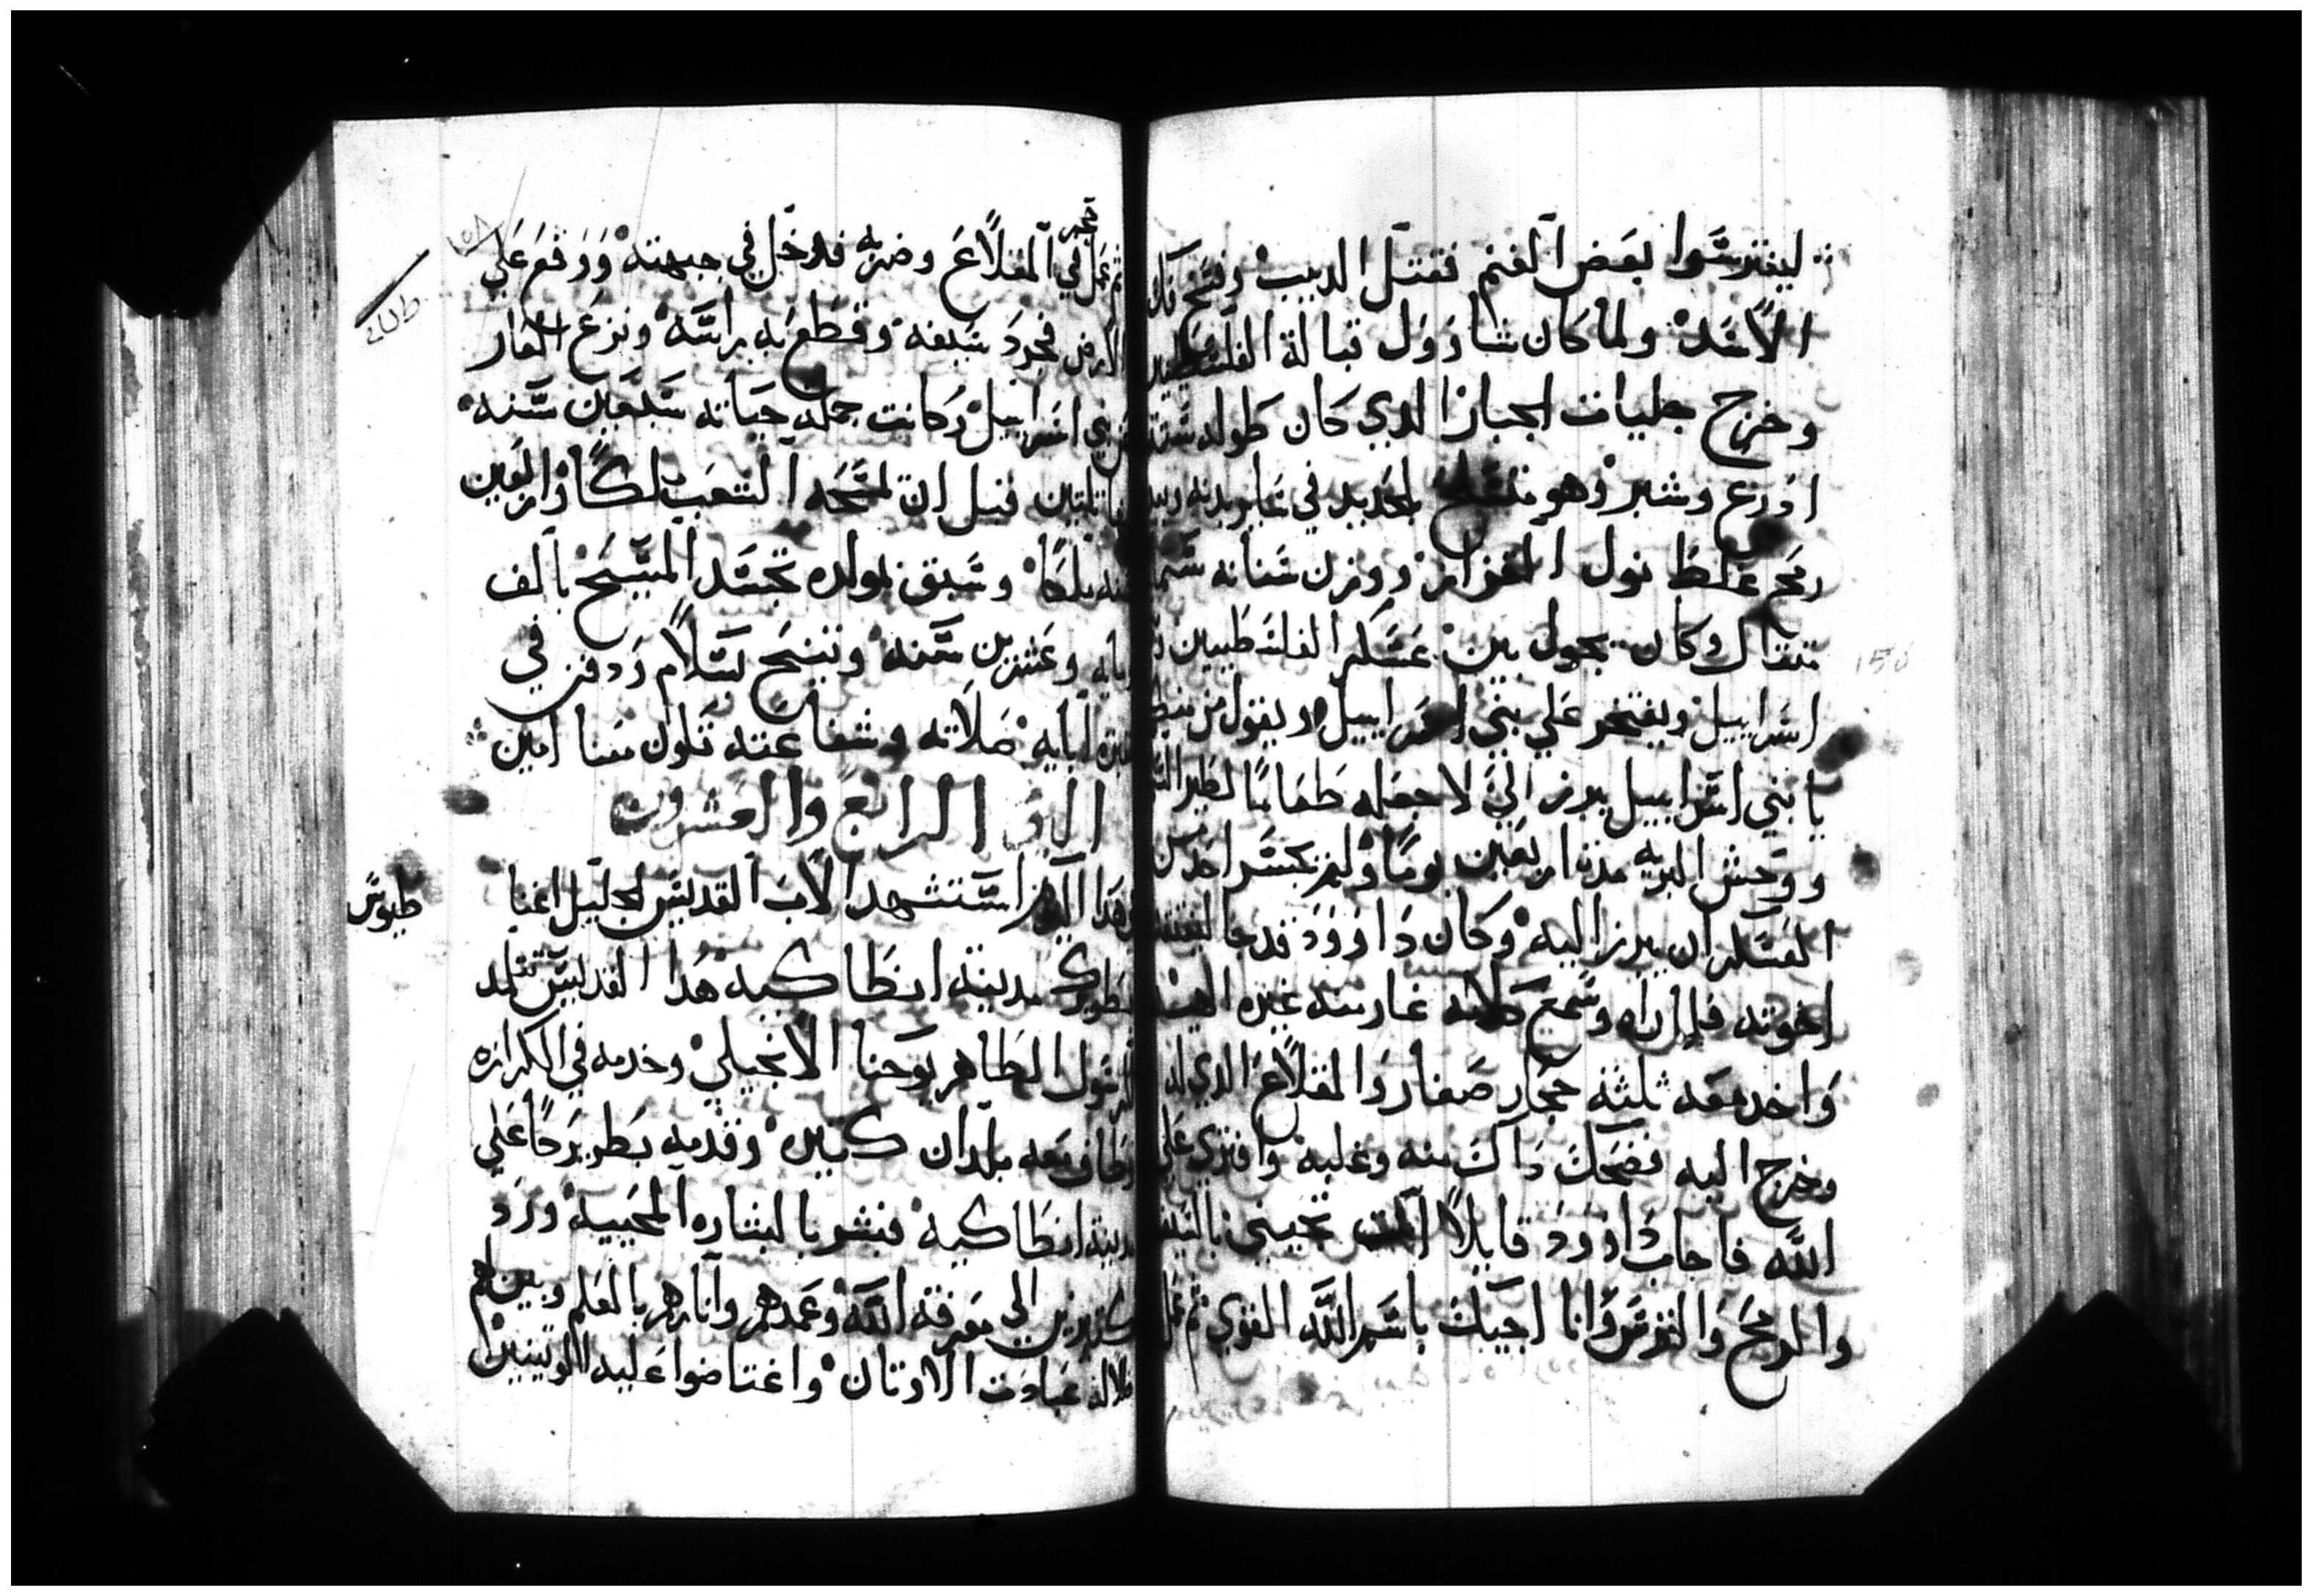 ليفترسوا بعض الغنم فقتل الدبيب وفسخ فك
الاسد ولما كان شاوول قبالة الفلسطين
وخرج جليات الجبار الدي كان طوله ستة
ادرع وشبر وهو متسلح بالحديد في ساير بدنه وبيد
رمح غلظ نول القزاز ووزن سنانه
متقال وكان يجول بين عسكر الفلسطيين
اسراييل ويفتخر علي بني اسراييل ويقول من
يا بني اسراييل يبرز الي لاجعله طعاما لطير السما
ووحش البريه مدة اربعين يوما ولم يجسر احد من
العسكر ان يبرز اليه وكان داوود قد جا ليفتقد
اخوته فلما راه وسمع كلامه غار منه غيره الهيه
واخد معه ثلثة حجار صغار والمقلاع الدي له
وخرج اليه فضحك داك منه وعليه وافتري علي
الله فاجاب داوود قايلا انت تجيني بالسيف
والرمح والترس وانا اجيك باسم الله القوي ثم عمل
١٥٨
حجر
ثم عمل في المقلاع وضربه فدخل في جبهته ووقع علي
الارض فجرد سيفه وقطع به راسه ونزع العار
عن بني اسراييل وكانت جملة حياته سبعين سنه
منها تلتين قبل ان تمسحه الشعب ملكا واربعين
سنه ملكا وسبق بمولده تجسد المسيح بالف
ومايه وعشرين سنه وتنيح بسلام ودفن في
قبره ابايه صلاته وشفاعته تكون معنا امين
اليوم الرابع والعشرون
وهدا اليوم استشهد الاب القديس الجليل اغنا
طيوس
بطريرك مدينة انطاكيه هدا القديس تتلمد
للرسول الطاهر يوحنا الانجيلي وخدمه في الكرازه
وطاف معه بلدان كتيره وقدمه بطريركا علي
مدينة انطاكيه فبشر بالبشاره المحييه ورد
كتيرين الي معرفة الله وعمدهم وانارهم بالعلم وبين لهم
ضلالة عبادت الاوتان واغتاضوا عليه الوتنيين